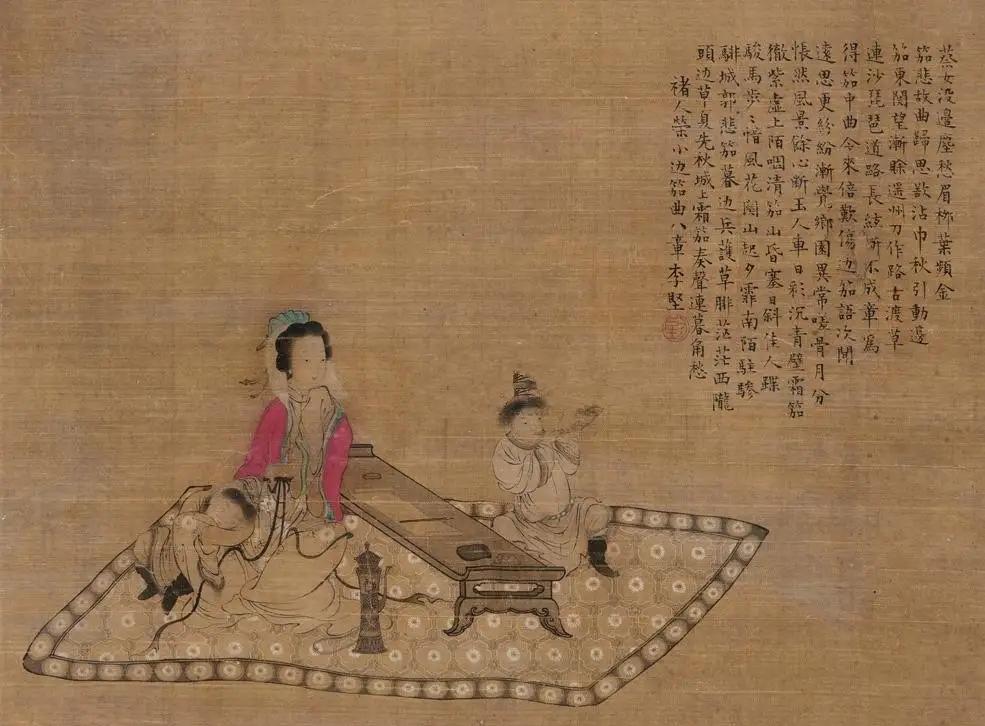 蔡女没邊塵愁眉柳葉頻金
笳悲故曲歸思欲沾巾秋引動邊
笳東関望漸賖還州刀作路古渡草
連沙琵琶道路長絃斷不成章寫
得笳中曲今來倍歎傷边笳語次聞
遠思更紛紛漸覺鄉園異常嗟骨月分
悵然風景餘心断玉人車日彩沉青壁霜笳
徹紫虛上陌咽清笳山昏塞日斜佳人蹀
駿馬步〻惜風花関山起夕霏南陌駐驂
騑城郭悲笳暮边兵護草腓茫茫西隴
頭边草先秋城上霜笳奏聲連暮角愁
褚人榮小边笳曲八章李堅